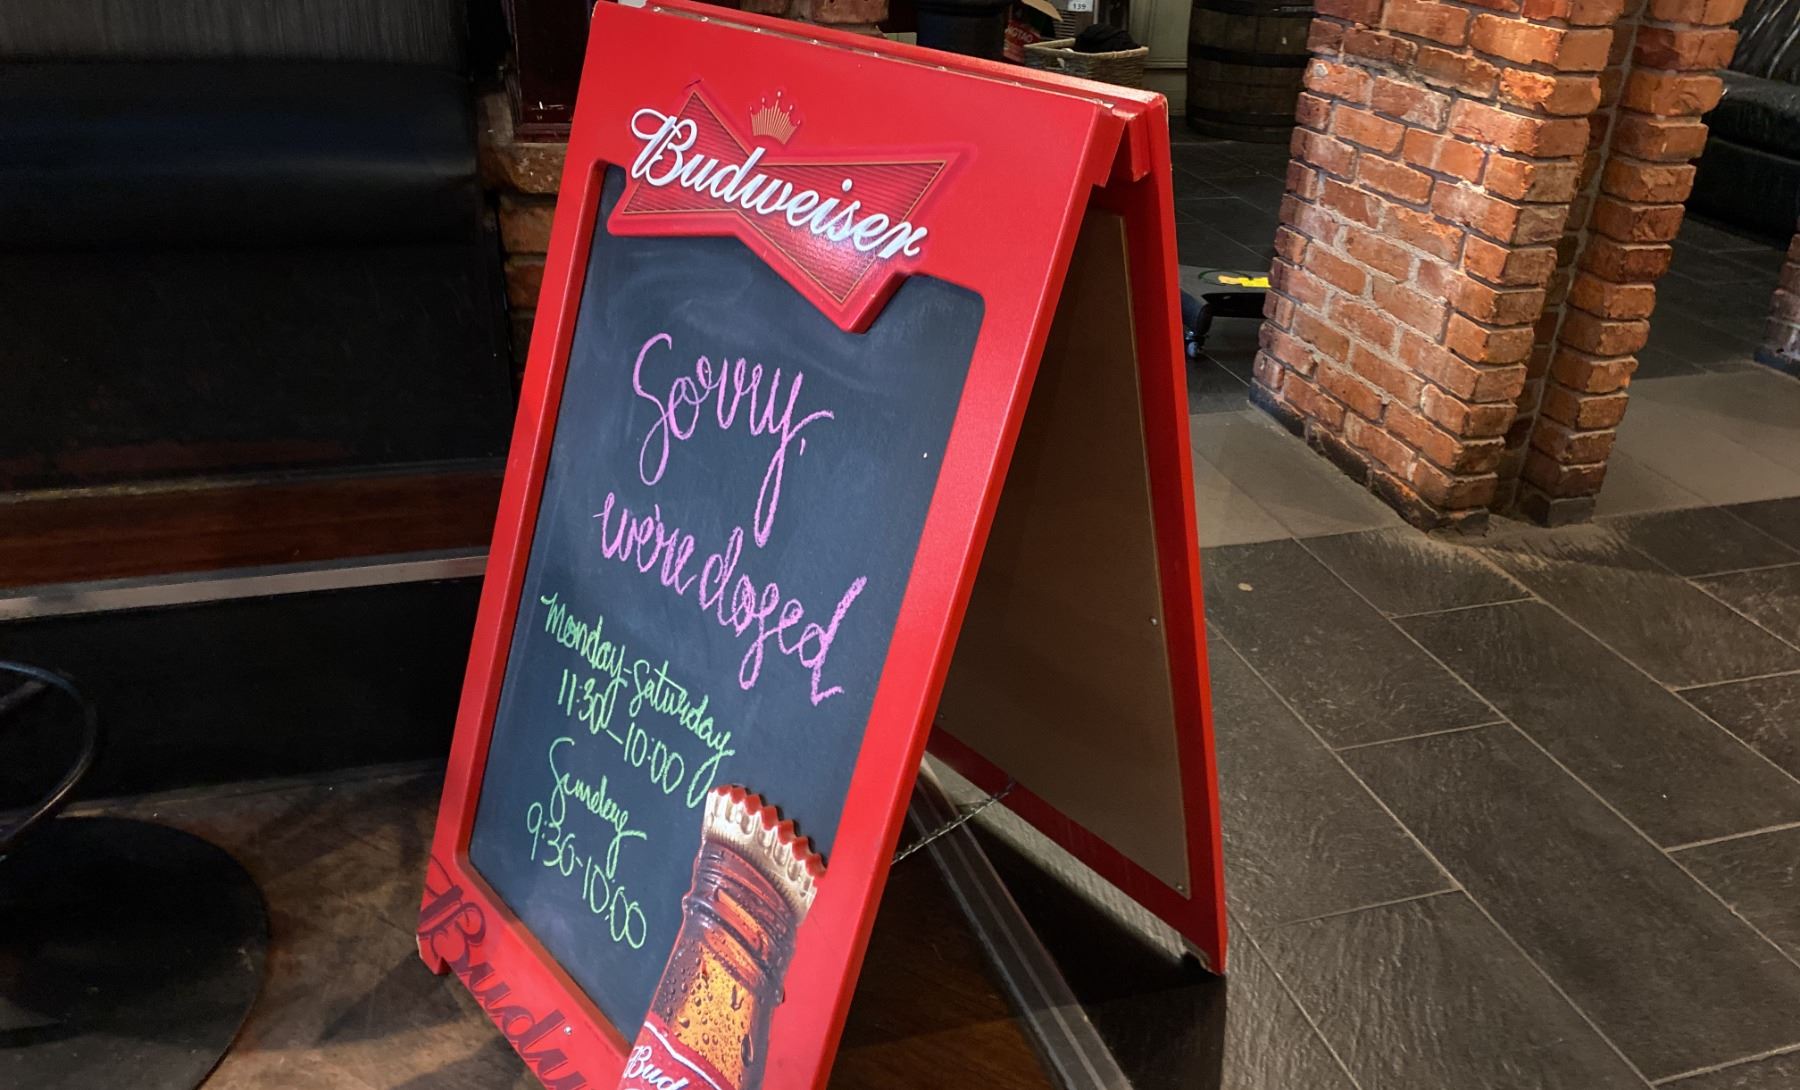 Budweiser
Sorry,
we're closed
Monday-Saturday
11:30-10:00
Sunday
9:30-10:00
Bud
Budw
139